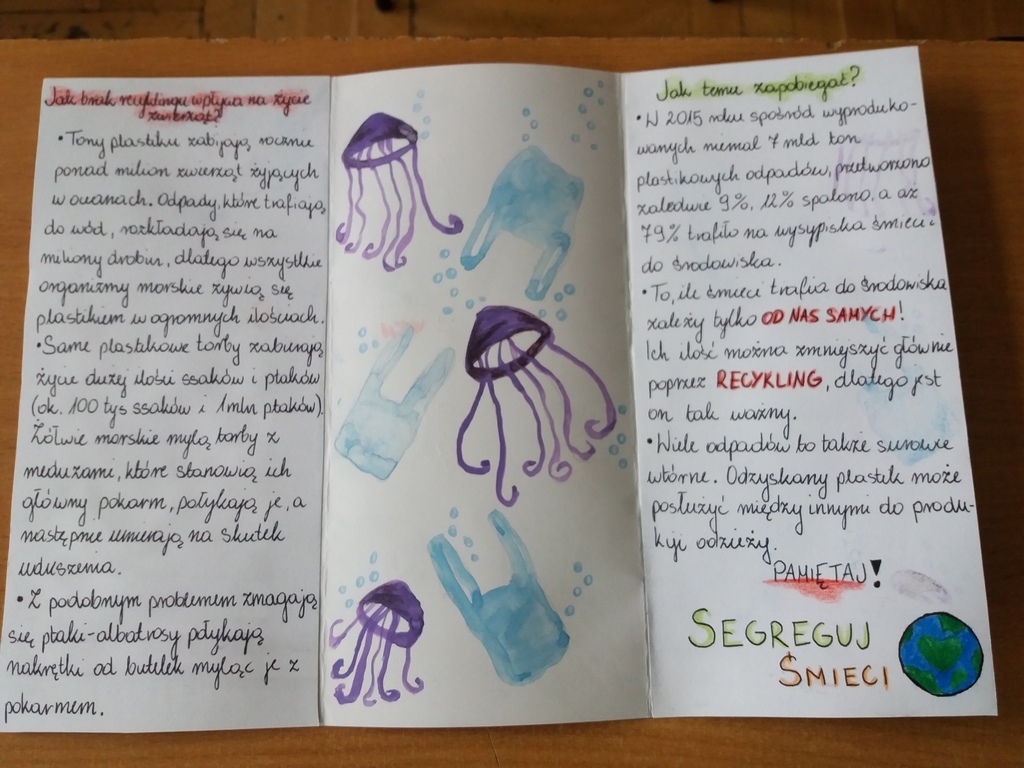 Jak brak recyklingu wpływa na życie
zwierząt?
• Tony plastiku zabijają rocznie
ponad milion zwierząt żyjących
w oceanach. Odpady, które trafiają
do wód, rozkładają się na
miliony drobin, dlatego wszystkie
organizmy morskie żywią się
plastikiem w ogromnych ilościach.
• Same plastikowe torby zabierają
życie dużej ilości ssaków i ptaków
(ok. 100 tys ssaków i 1mln ptaków).
Żółwie morskie mylą torby z
meduzami, które stanowią ich
główny pokarm, połykają je, a
następnie umierają na skutek
uduszenia.
• Z podobnym problemem zmagają
się ptaki-albatrosy połykają
nakrętki od butelek myląc je z
pokarmem.
Jak temu zapobiegać?
• W 2015 roku spośród wyproduko-
wanych niemal 7 mld ton
plastikowych odpadów, przetworzono
zaledwie 9%, 12% spalono, a aż
79% trafiło na wysypiska śmieci i
do środowiska.
• To, ile śmieci trafia do środowiska
zależy tylko OD NAS SAMYCH!
Ich ilość można zmniejszyć głównie
poprzez RECYKLING, dlatego jest
on tak ważny.
• Wiele odpadów to także surowce
wtórne. Odzyskany plastik może
posłużyć między innymi do produ-
kcji odzieży.
PAMIĘTAJ!
SEGREGUJ
ŚMIECI